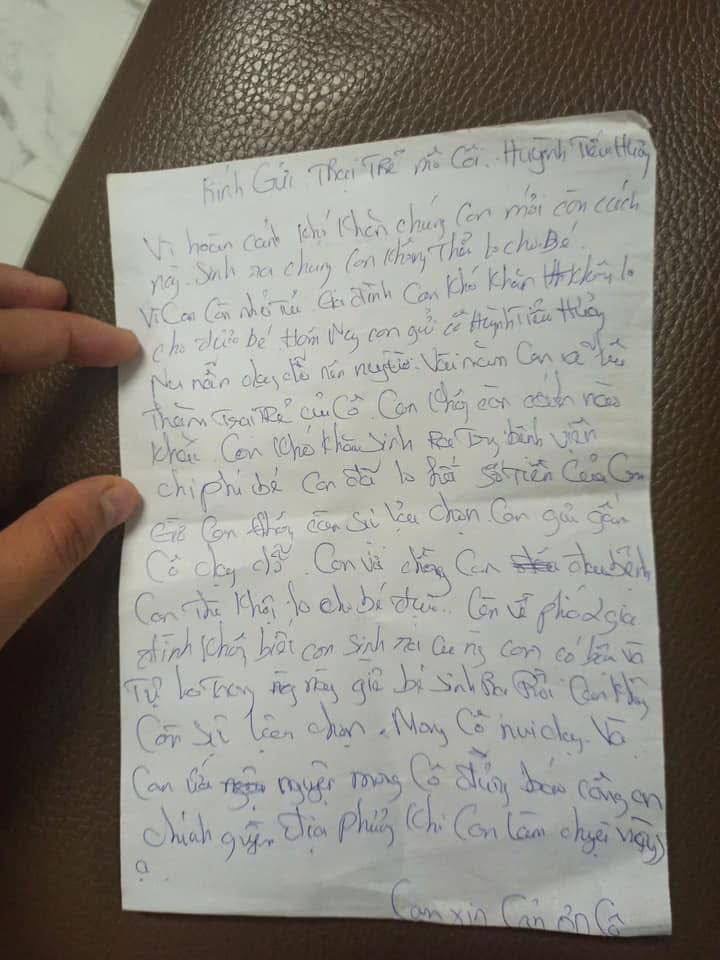 Kính Gửi Trại Trẻ mồ Côi. Huỳnh Tiểu Hương
Vì hoàn cảnh khó khăn chúng con mới còn cách
này. Sinh ra chúng con không thể lo cho bé.
Vì Con Còn nhỏ Gia đình Con khó khăn không lo
cho được bé Hôm Nay con gửi cô Huỳnh Tiểu Hương
dạy dỗ nên người. Vài năm Con sẽ
thăm trại trẻ của Cô. Con không còn cách nào
khác. Con khó khăn sinh Ra bệnh viện
chi phí bé Con đã lo hết số tiền Của Con
Giờ Con không còn sự lựa chọn. Con gửi gắm
Cô dạy dỗ. Con và chồng Con đều bệnh
Con lo cho bé được. Còn về phía 2 gia
đình không biết con sinh ra con có bầu và
Tự lo giờ bé sinh Ra Rồi Con không
Còn sự lựa chọn. Mong Cô nuôi dạy. Và
Con nguyện mong Cô đừng báo công an
chính quyền địa phương khi Con làm chuyện này
ạ.
Con xin Cản ơn Cô